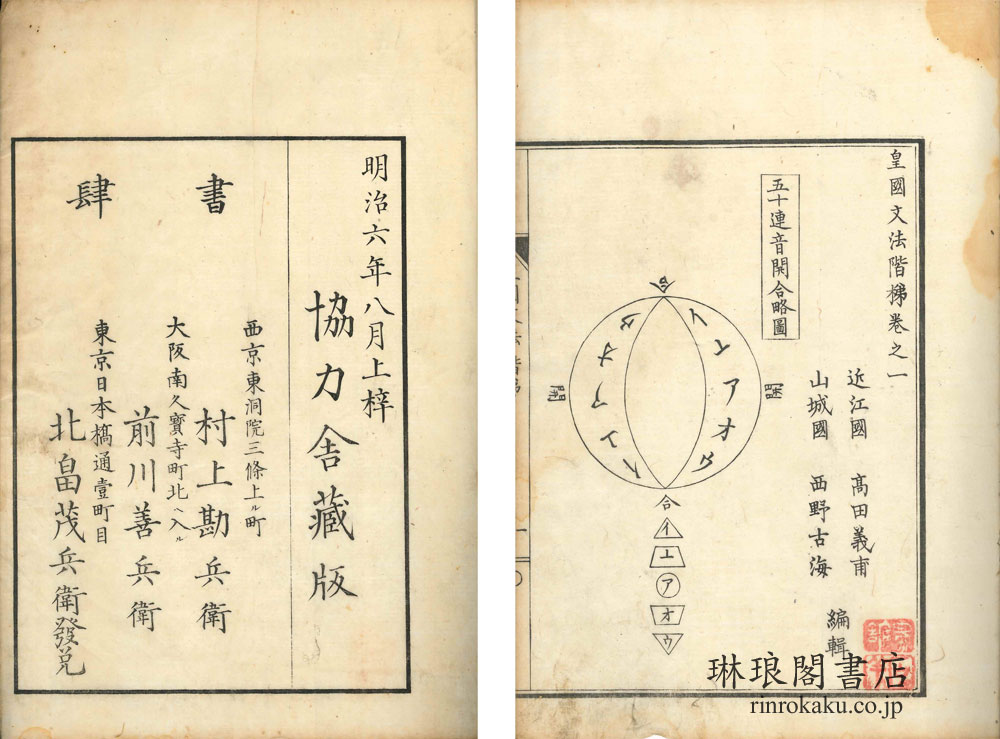 皇國文法階梯卷之一
近江國 髙田義甫
山城國 西野古海
編輯
五十連音開合略圖
合
イ
エ
ア
オ
ウ
開
開
ウ
オ
ア
エ
イ
合
イ
エ
ア
オ
ウ
琳琅閣書店
rinrokaku.co.jp
明治六年八月上梓
協力舎藏版
書肆
西京東洞院三條上ル町
村上勘兵衛
大阪南久寶寺町北ヘ入ル
前川善兵衛
東京日本橋通壹町目
北畠茂兵衛發兌